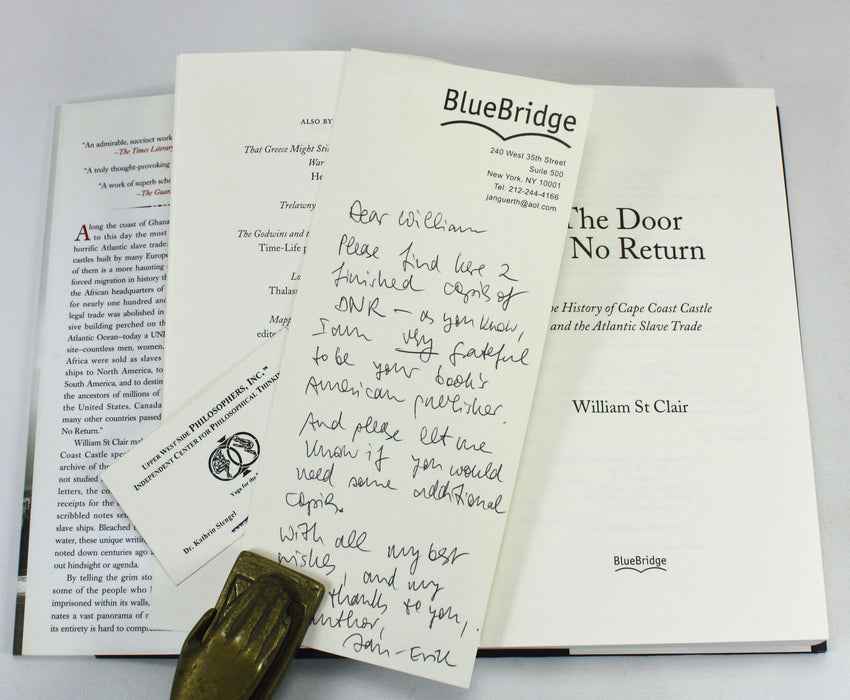 "An admirable, succinct work
–The Times Literary
"A truly thought-provoking
"A work of superb scho
–The Guar
Along the coast of Ghana
to this day the most
horrific Atlantic slave trade:
castles built by many Europe
of them is a more haunting
forced migration in history th
the African headquarters of
for nearly one hundred and
legal trade was abolished in
sive building perched on th
Atlantic Ocean–today a UN
site–countless men, women,
Africa were sold as slaves
ships to North America, to
South America, and to destin
the ancestors of millions of
the United States, Canada
many other countries passed
No Return."
William St Clair mal
Coast Castle spe
archive of the
not studied
letters, the co
receipts for the
scribbled notes se
slave ships. Bleached
water, these unique writin
noted down centuries ago
out hindsight or agenda.
By telling the grim sto
some of the people who
imprisoned within its walls,
nates a vast panorama of
its entirety is hard to compre
ALSO BY
That Greece Might Sti
War
He
Trelawny
The Godwins and t
Time-Life p
Lo
Thalas
Mapp
edite
UPPER WEST SIDE PHILOSOPHERS, INC.™
INDEPENDENT CENTER FOR PHILOSOPHICAL THINKIN
Yoga for the
Dr. Kathrin Stengel
BlueBridge
240 West 35th Street
Suite 500
New York, NY 10001
Tel: 212-244-4166
janguerth@aol.com
Dear William
Please find here 2
finished copies of
DNR – as you know,
I am very grateful
to be your book's
American publisher.
And please let me
know if you would
need some additional
copies.
With all my best
wishes, and my
thanks to you,
author,
Jan-Erik
The Door
No Return
he History of Cape Coast Castle
and the Atlantic Slave Trade
William St Clair
BlueBridge